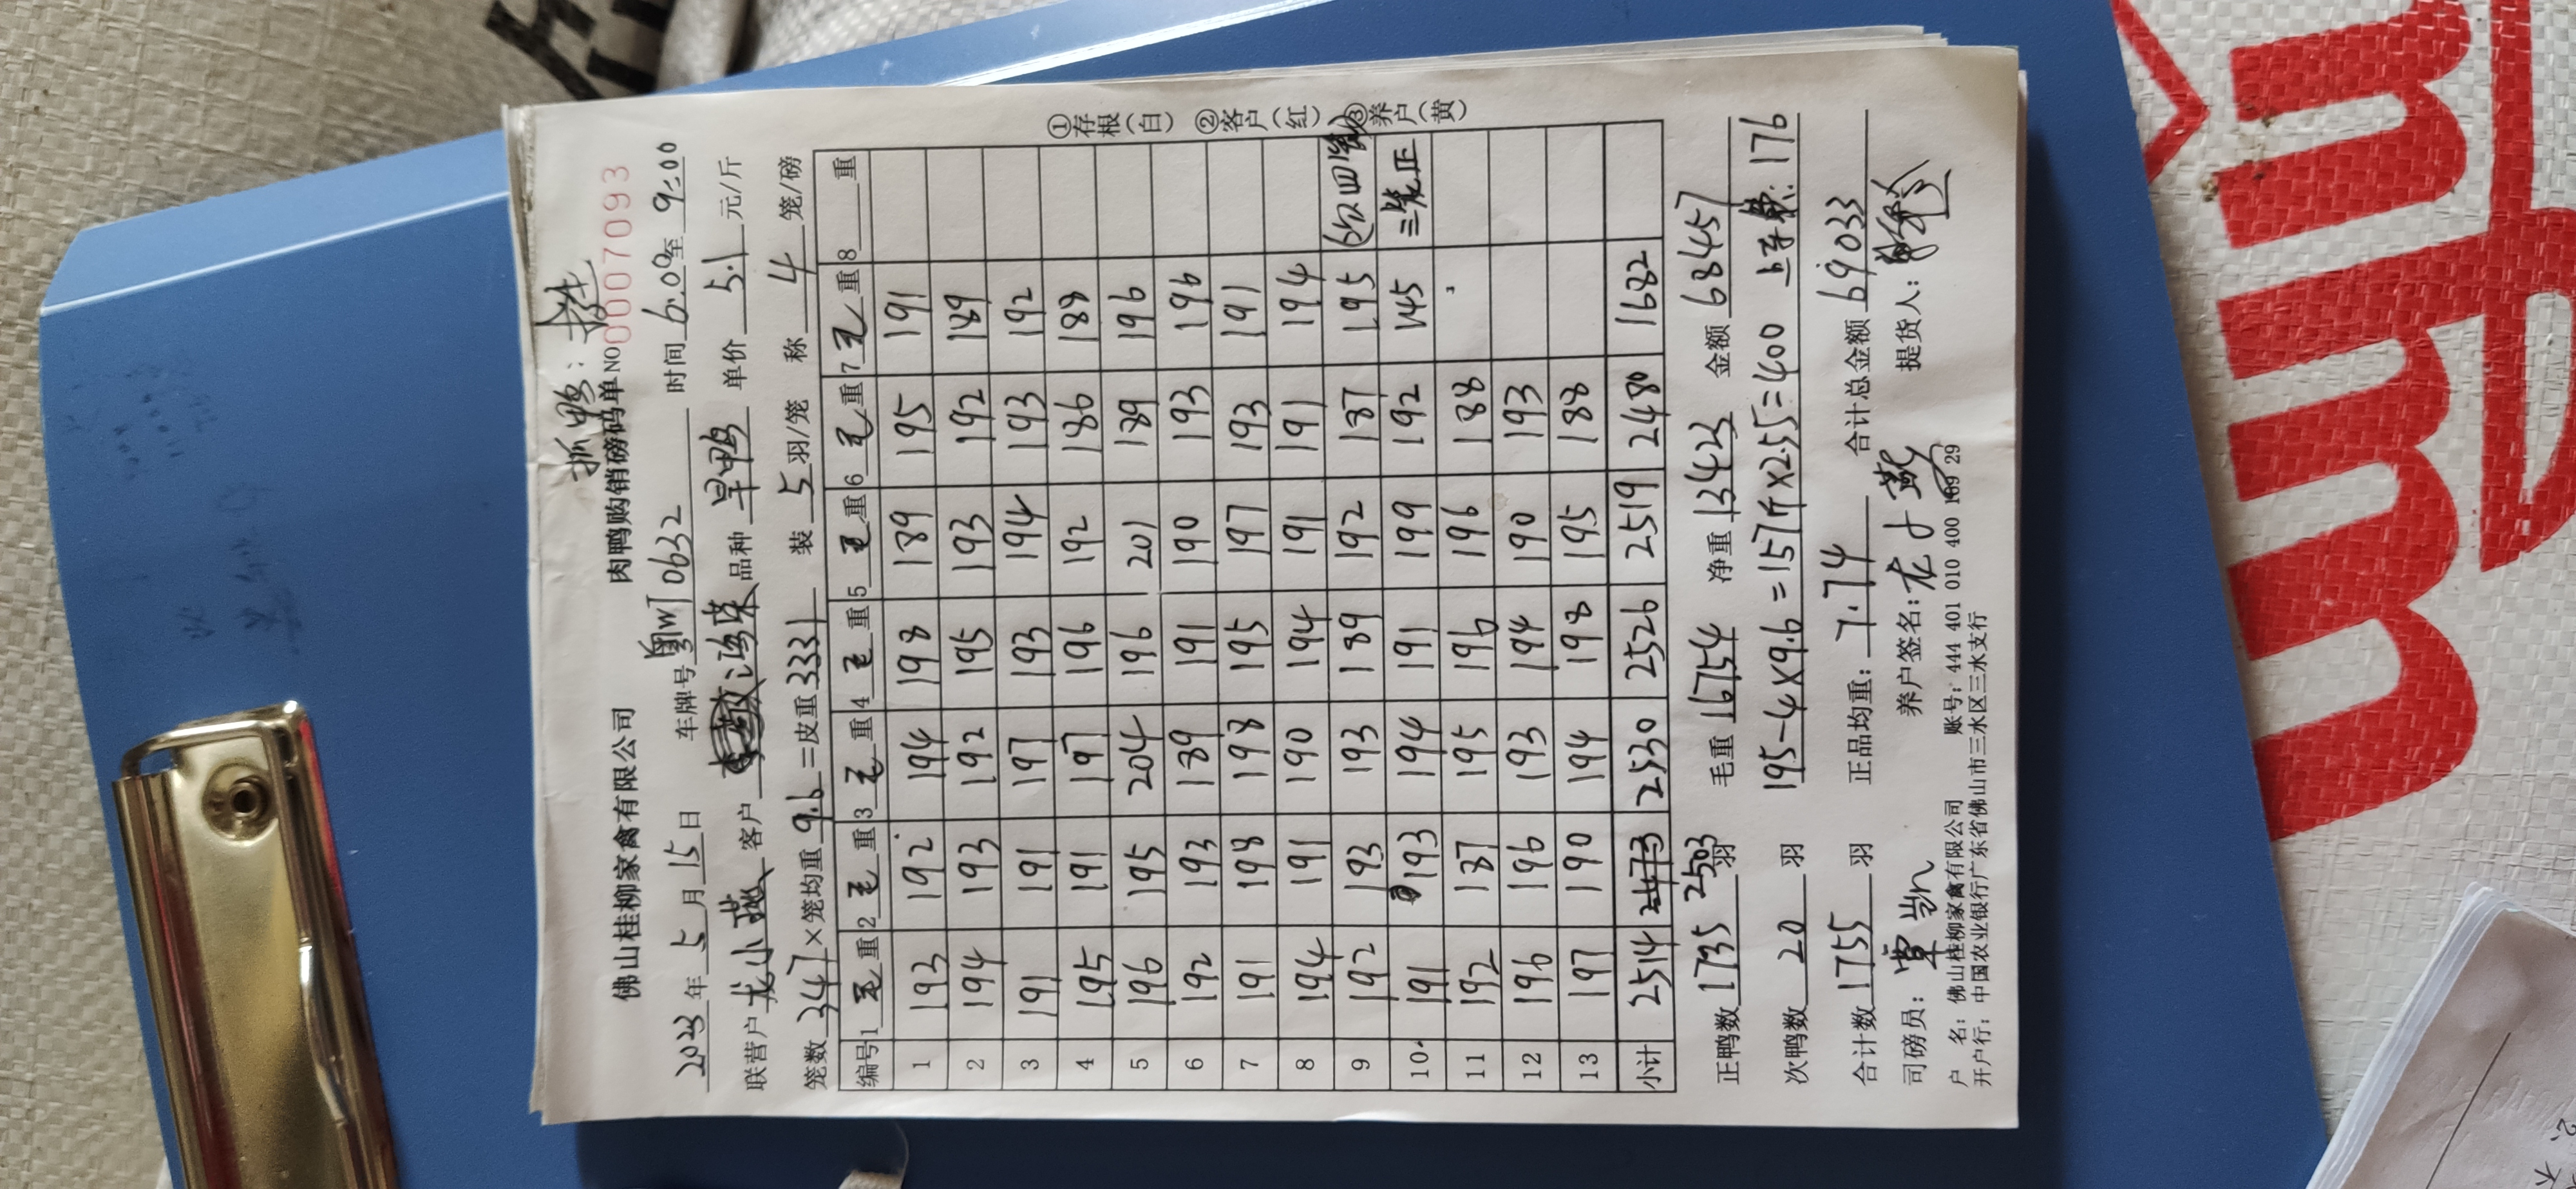 抓鸭:
佛山桂柳家禽有限公司 肉鸭购销磅码单 NO 0007093
2023 年 5 月 15 日 车牌号 粤WT0632 时间 6:00 至 9:00
联营户 龙小燕 客户 品种 旱鸭 单价 5.1 元/斤
笼数 347 × 笼均重 9.6 = 皮重 3331 装 5 羽/笼 称 4 笼/磅
编号 1 毛 重 2 毛 重 3 毛 重 4 毛 重 5 毛 重 6 毛 重 7 毛 重 8 重
1 193 192 194 198 189 195 191
2 194 193 192 195 193 192 189
3 191 191 197 193 194 193 192
4 195 191 197 196 192 186 188
5 196 195 204 196 201 189 196
6 192 193 189 191 190 193 196
7 191 198 198 195 197 193 191
8 194 191 190 194 191 191 194
9 192 193 193 189 192 187 195 (次四笼)
10 191 193 194 191 199 192 145 三笼正
11 192 187 195 196 196 188
12 196 196 193 194 190 193
13 197 190 194 198 195 188
小计 2514 2473 2530 2526 2519 2480 1682
2503
正鸭数 1735 羽 毛重 16754 净重 13423 金额 68457
次鸭数 20 羽 195-4×9.6=157斤×2.55=400 上车费:176
合计数 1755 羽 正品均重: 7.74 合计总金额 69033
司磅员: 覃凯 养户签名: 龙小燕 提货人:
户 名: 佛山桂柳家禽有限公司 账号: 444 401 010 400 169 29
开户行: 中国农业银行广东省佛山市三水区三水支行
①存根(白) ②客户(红) ③养户(黄)